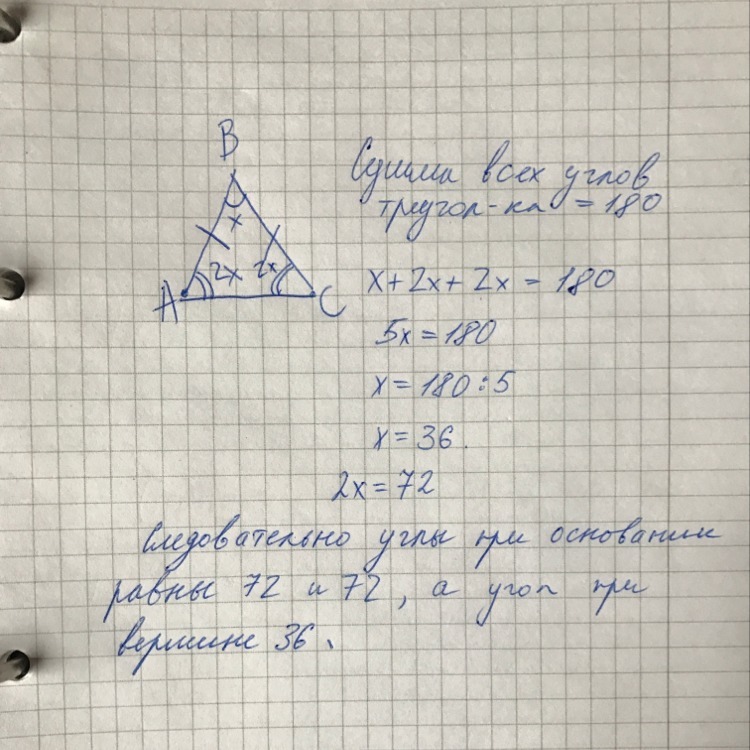 B
Сумма всех углов
треугол-ка = 180
x
2x 2x
A C
x + 2x + 2x = 180
5x = 180
x = 180 : 5
x = 36.
2x = 72
Следовательно углы при основании
равны 72 и 72, а угол при
вершине 36.